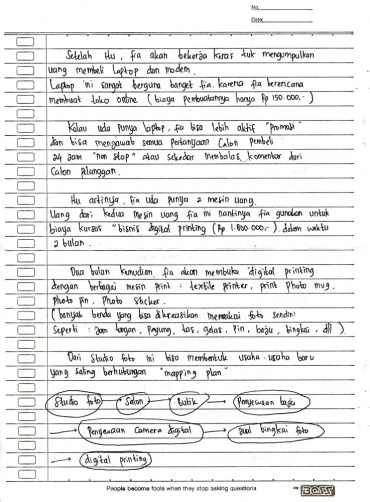 No.
Date
Setelah itu, fia akan bekerja keras tuk mengumpulkan
uang membeli laptop dan modem.
Laptop ini sangat berguna banget fia. karena fia berencana
membuat toko online (biaya pembuatannya hanya Rp 150.000,-)
Kalau uda punya laptop, fia bisa lebih aktif "promosi"
dan bisa menjawab semua pertanyaan calon pembeli
24 jam "non stop" atau sekedar membalas komentar dari
calon pelanggan.
Itu artinya, fia uda punya 2 mesin uang.
Uang dari kedua mesin uang fia ini nantinya fia gunakan untuk
biaya kursus "bisnis digital printing (Rp 1.800.000,-). dalam waktu
2 bulan.
Dua bulan kemudian, fia akan membuka digital printing
dengan berbagai mesin print : textile printer, print photo mug,
photo pin, photo sticker.
(banyak benda yang bisa dikreasikan memakai foto sendiri
seperti : jam tangan, payung, tas, gelas, pin, baju, bingkai, dll).
Dari studio foto ini bisa membentuk usaha-usaha baru
yang saling berhubungan "mapping plan"
Studio foto → Salon → Butik → Penyewaan baju
→ Penyewaan camera digital → Jual bingkai foto
→ digital printing
People become fools when they stop asking questions
BOSS